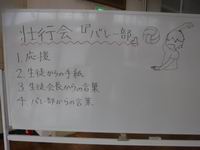 壮行会『バレー部』
1. 応援
2. 生徒からの手紙
3 生徒会長からの言葉
4. バレー部からの言葉